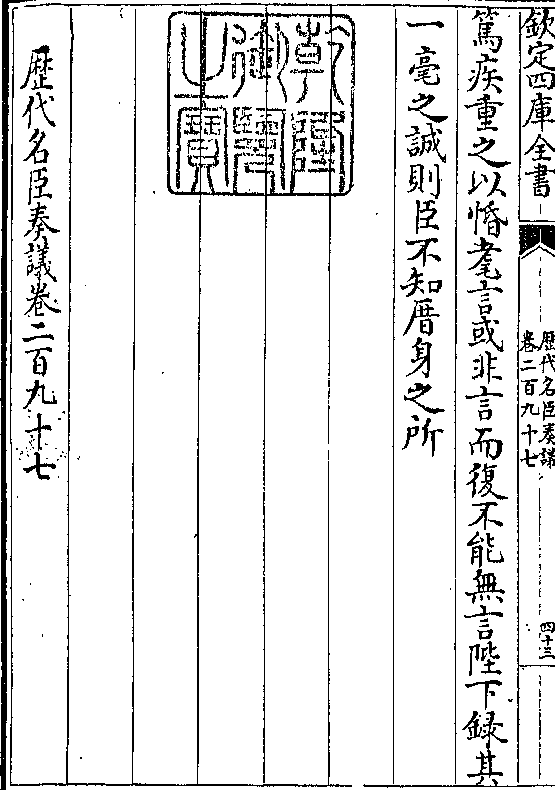 欽定四庫全書
歴代名臣奏議
卷二百九十七
四十三
篤疾重之以惛耄言或非言而復不能無言陛下録其
一毫之誠則臣不知厝身之所
乾隆御覽之寶
歴代名臣奏議卷二百九十七